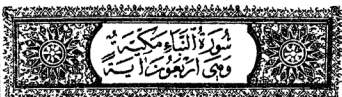 سُورَةُ النَّبَاِ مَكِّيَّةٌ
وَهِيَ اَرْبَعُونَ اٰيَةً